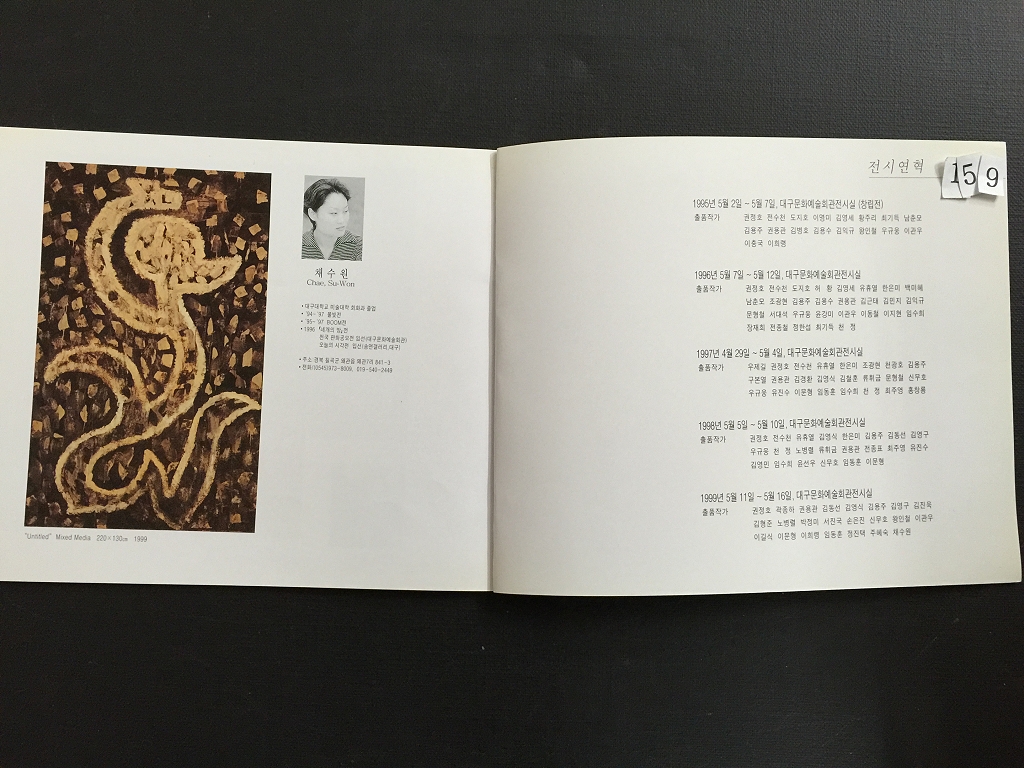 채 수 원
Chae, Su-Won
• 대구대학교 미술대학 회화과 졸업
• '94~ '97 불빛전
• '95~ '97 BOOM전
• 1996 「세개의 힘」전
전국 관광공모전 입선(대구문화예술회관)
오늘의 시각전 입선(송현갤러리,대구)
• 주소:경북 칠곡군 왜관읍 왜관7리 841-3
• 전화/(0545)973-8009, 019-540-2448
"Untitled" Mixed Media 220×130㎝ 1999
전시연혁
15/9
1995년 5월 2일 ~ 5월 7일, 대구문화예술회관전시실 (창립전)
출품작가 권정호 전수천 도지호 이명미 김영세 황주리 최기득 남춘모
김용주 권용관 김병호 김용수 김익규 왕인철 우규웅 이관우
이충국 이희령
1996년 5월 7일 ~ 5월 12일, 대구문화예술회관전시실
출품작가 권정호 전수천 도지호 허 황 김영세 유휴열 한은미 백미혜
남춘모 조광현 김용주 김용수 권용관 김근태 김민지 김익규
문형철 서대석 우규웅 윤강미 이관우 이동철 이지현 임수희
장재희 전종철 정한섭 최기득 천 정
1997년 4월 29일 ~ 5월 4일, 대구문화예술회관전시실
출품작가 우제길 권정호 전수천 유휴열 한은미 조광현 천광호 김용주
구본열 권용관 김경환 김영식 김철훈 류휘금 문형철 신무호
우규웅 유진수 이문형 임동훈 임수희 천 정 최주영 홍창룡
1998년 5월 5일 ~ 5월 10일, 대구문화예술회관전시실
출품작가 권정호 전수천 유휴열 김영식 한은미 김용주 김동선 김영구
우규웅 천 정 노병렬 류휘금 권용관 전종표 최주영 유진수
김영민 임수희 윤선우 신무호 임동훈 이문형
1999년 5월 11일 ~ 5월 16일, 대구문화예술회관전시실
출품작가 권정호 곽종하 권용관 김동선 김영식 김용주 김영구 김진욱
김형준 노병렬 박정미 서진국 손은진 신무호 왕인철 이관우
이길식 이문형 이희령 임동훈 정진택 주혜숙 채수원